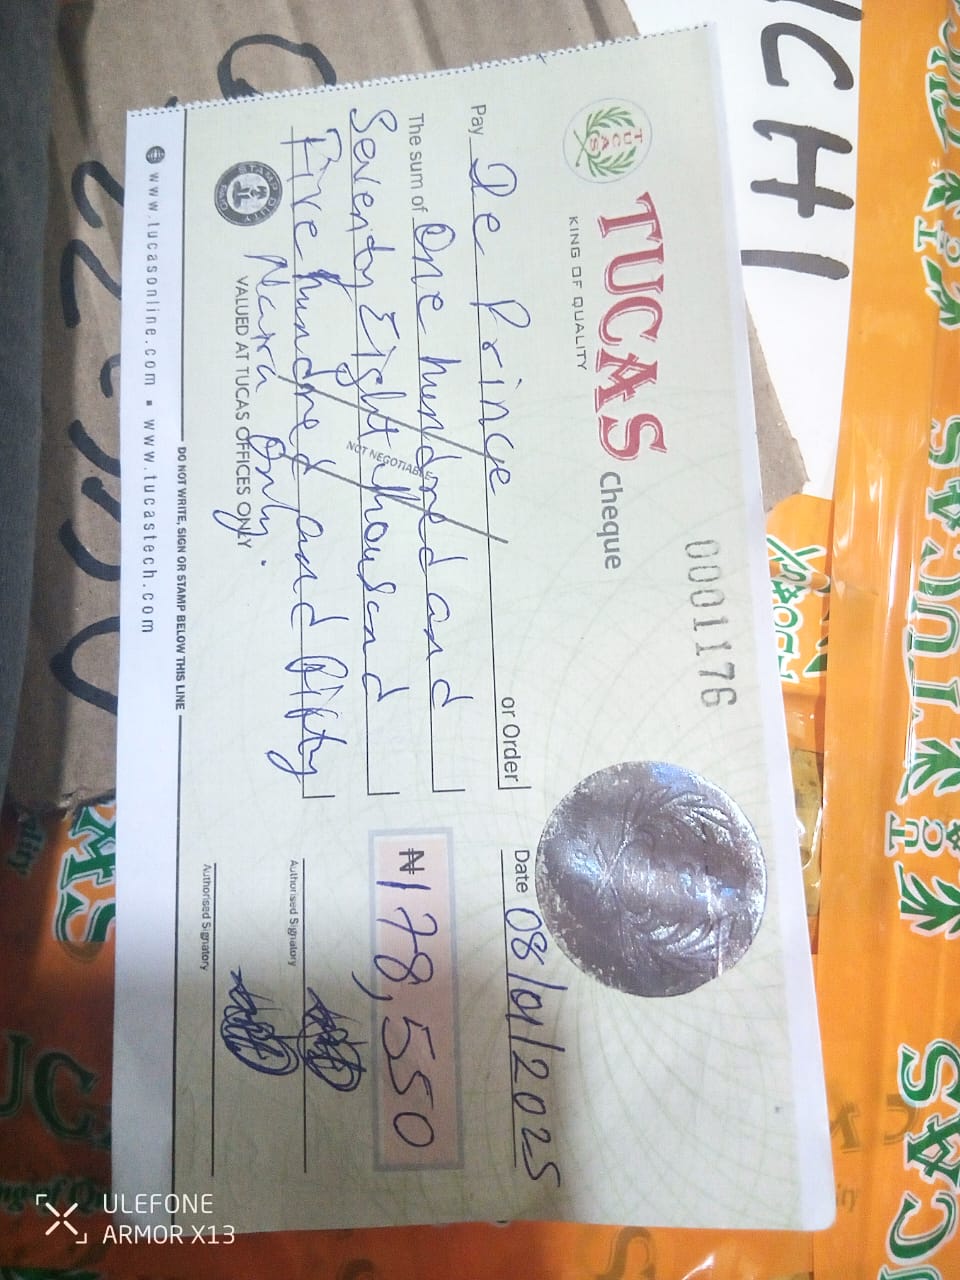 TUCAS Cheque
KING OF QUALITY
TUCAS
0001176
Pay De Prince or Order
Date 08/01/2025
The sum of One hundred and
Seventy Eight thousand
Five hundred and Fifty
Naira Only.
₦178,550
NOT NEGOTIABLE
STAMP DUTY
VALUED AT TUCAS OFFICES ONLY
Authorised Signatory
Authorised Signatory
DO NOT WRITE, SIGN OR STAMP BELOW THIS LINE
www.tucasonline.com • www.tucastech.com
TUCAS
TUCAS
ULEFONE
ARMOR X13